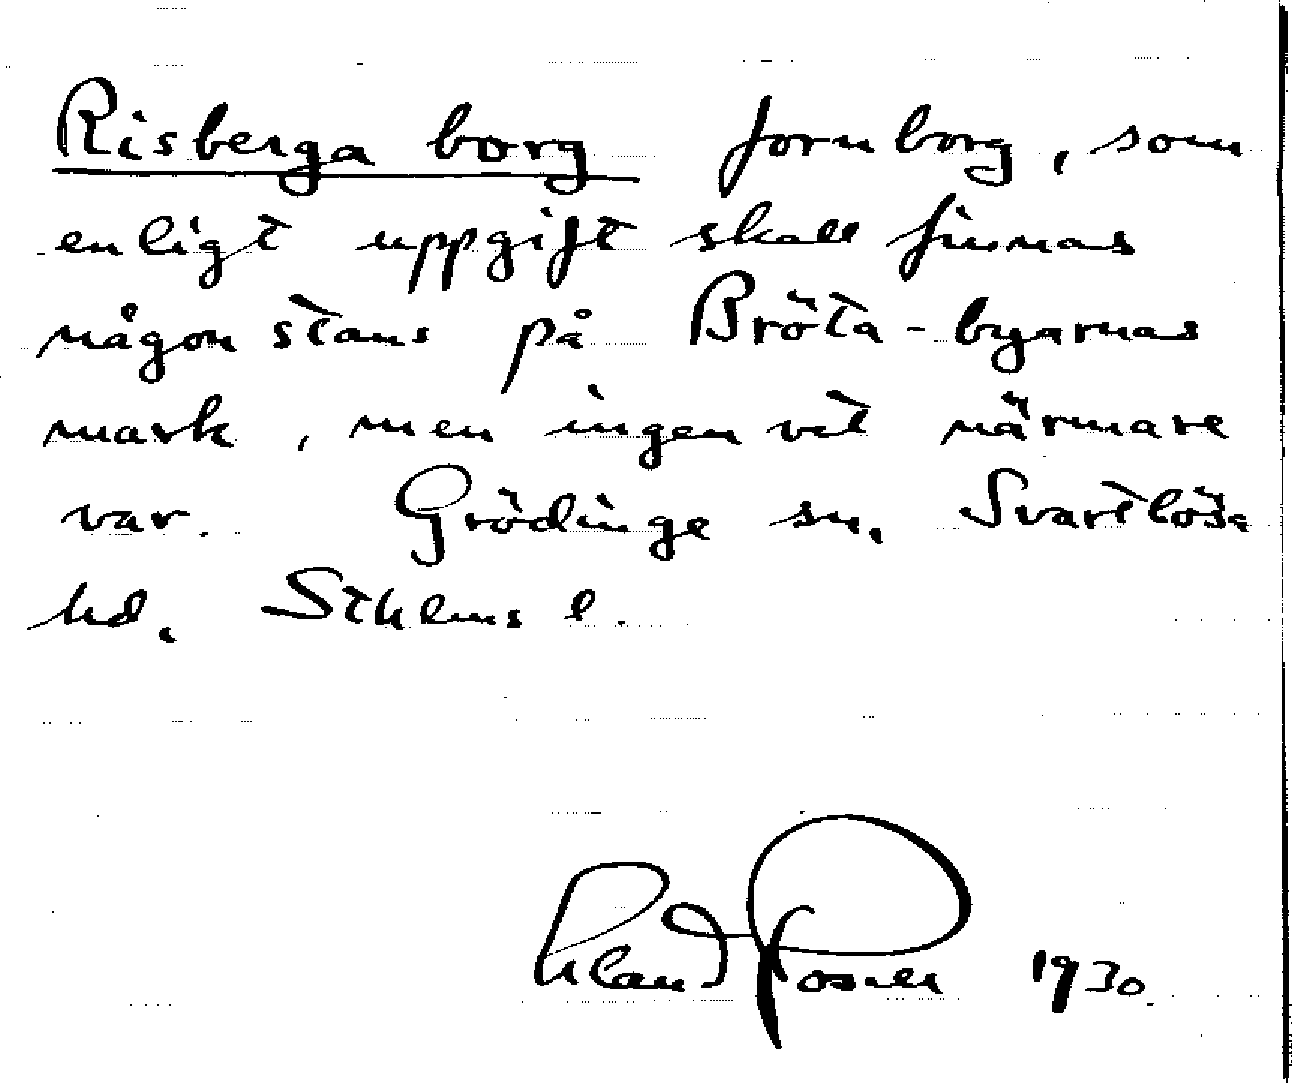 Risberga borg fornborg, som
enligt uppgift skall finnas
någonstans på Bröta-byarnas
mark, men ingen vet närmare
var. Grödinge sn, Svartlösa
hd, Sthlms l.
Rosell 1930.